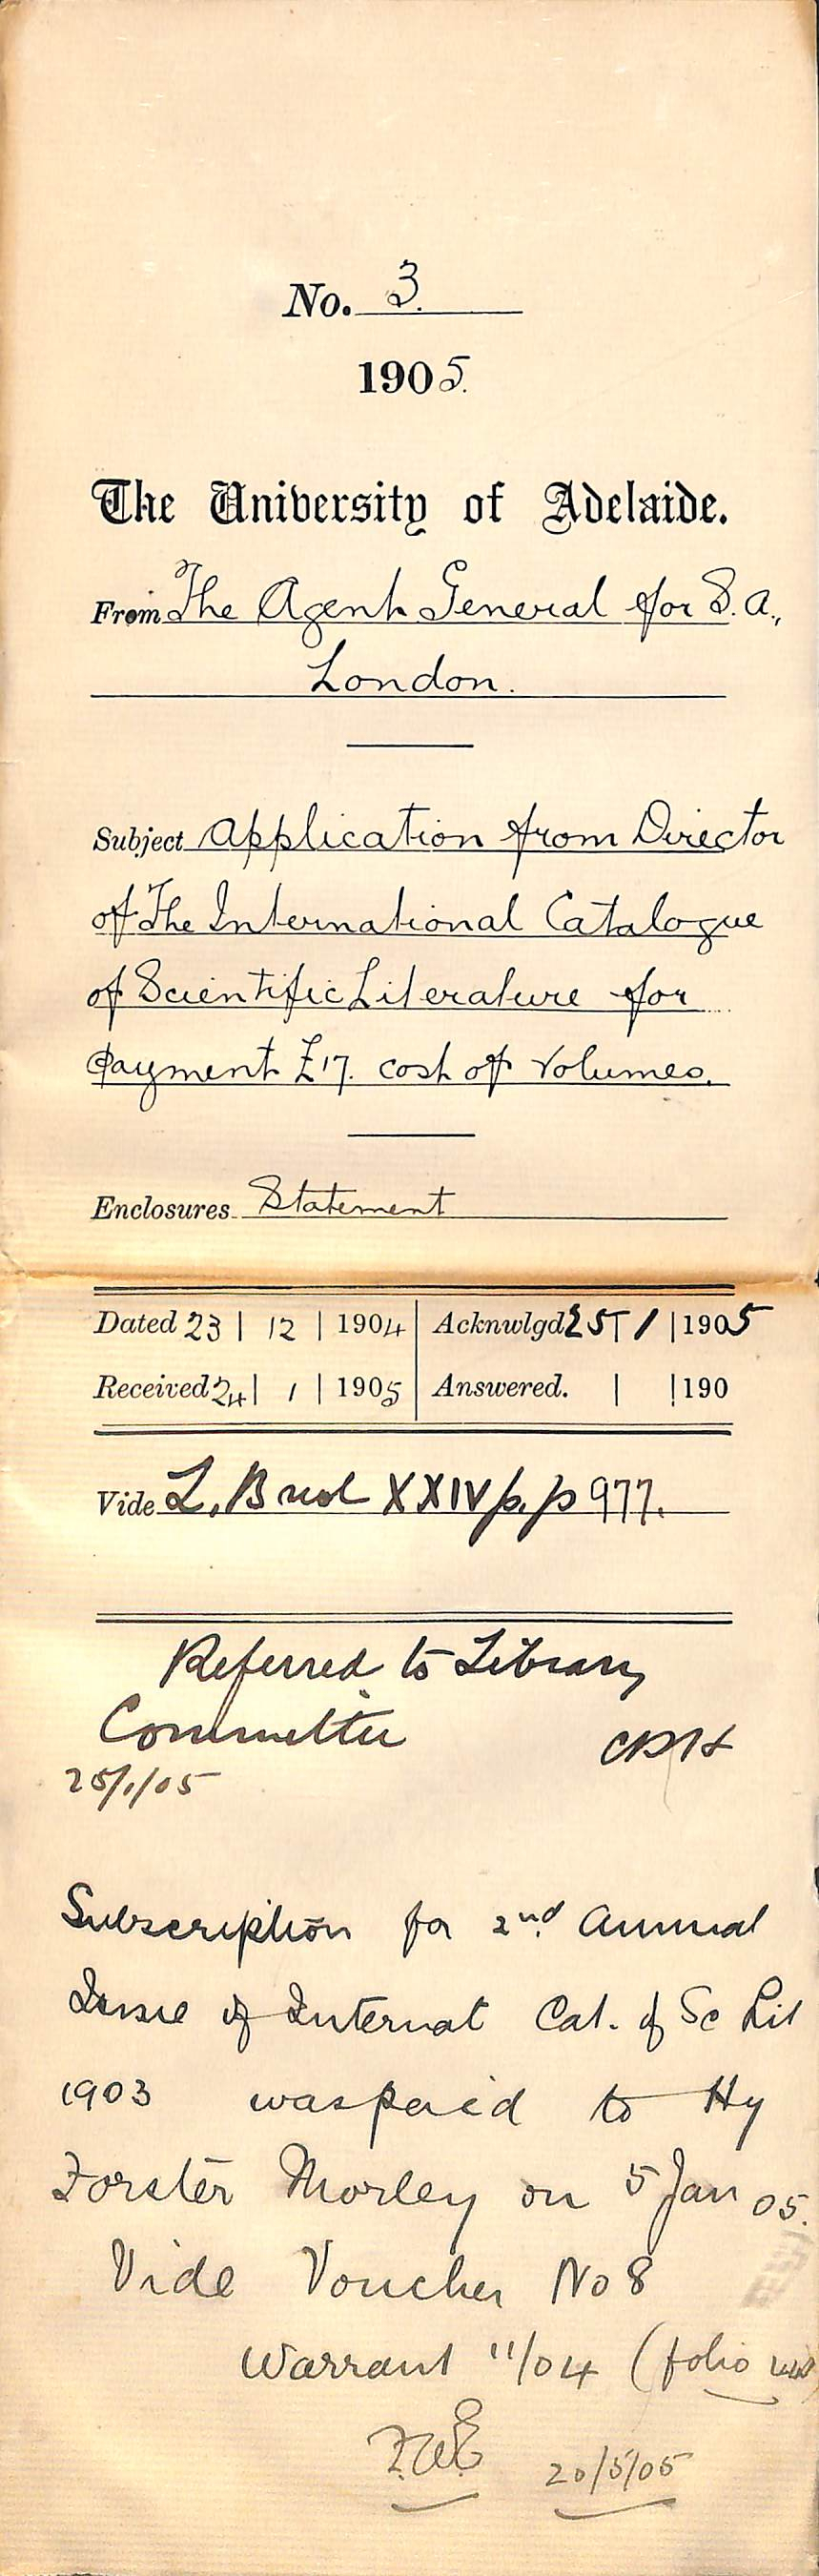 No. 3.
1905.
The University of Adelaide.
From The Agent General for S.A.,
London.
Subject Application from Director
of The International Catalogue
of Scientific Literature for
payment £17. cost of Volumes.
Enclosures. Statement
Dated 23 | 12 | 1904 Acknwlgd 25 | 1 | 1905
Received 24 | 1 | 1905 Answered. | | 190
Vide L. Book XXIV p. 977.
Referred to Library
Committee CRH
25/1/05
Subscription for 2nd Annual
Issue of Internat Cat. of Sc Lit
1903 was paid to Hy
Forster Morley on 5 Jan 05.
Vide Voucher No 8
Warrant 11/04 (folio
20/5/05